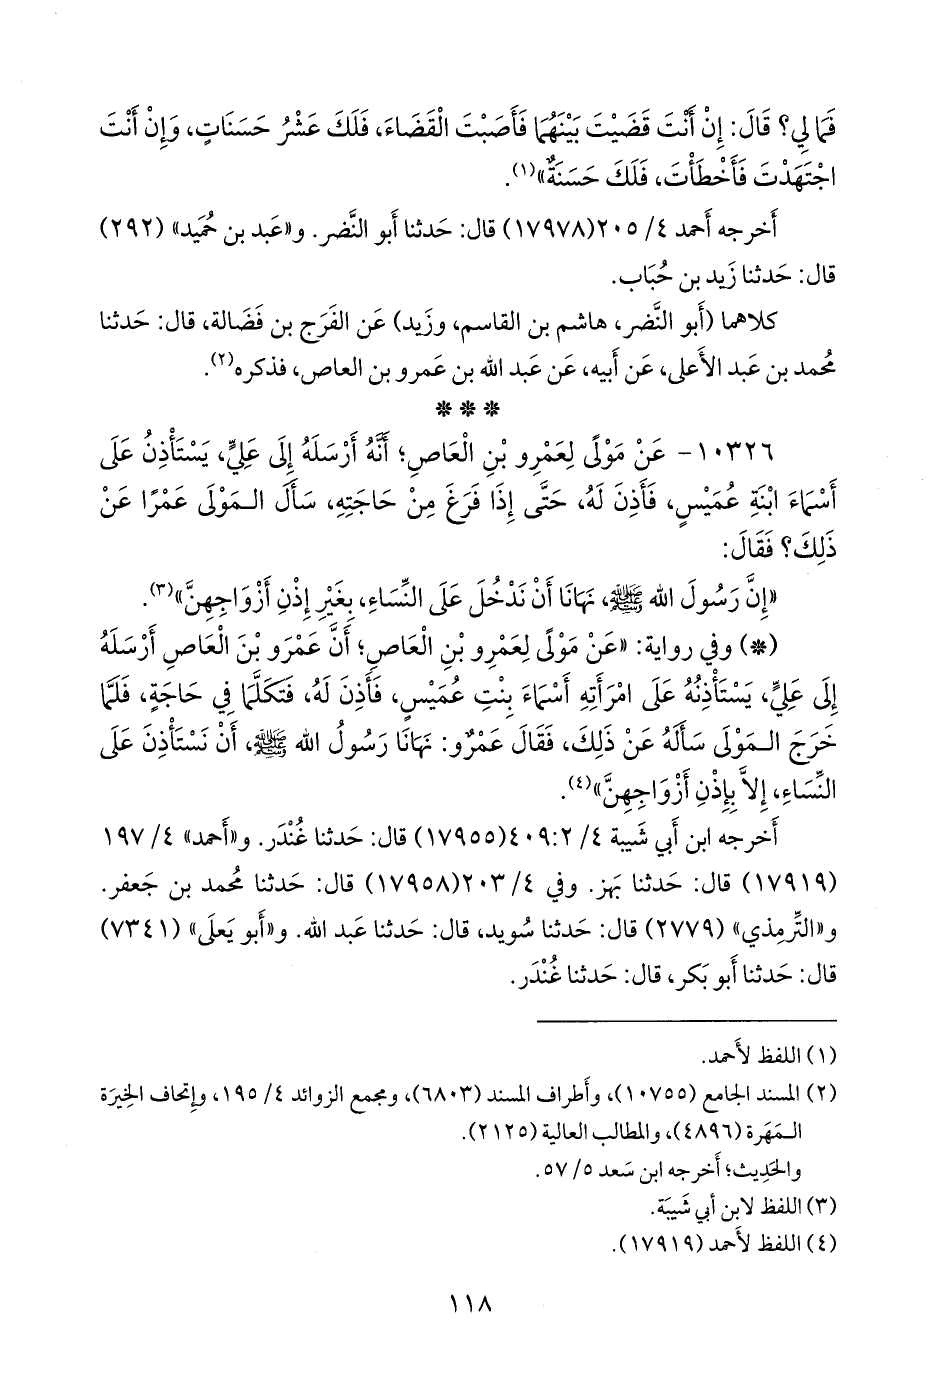 فَمَا لِي؟ قَالَ: إِنْ أَنْتَ قَضَيْتَ بَيْنَهُمَا فَأَصَبْتَ الْقَضَاءَ، فَلَكَ عَشْرُ حَسَنَاتٍ، وَإِنْ أَنْتَ
اجْتَهَدْتَ فَأَخْطَأْتَ، فَلَكَ حَسَنَةٌ»(١).
أَخرجه أَحمد ٤/ ٢٠٥(١٧٩٧٨) قال: حَدثنا أَبو النَّضر. و«عَبد بن حُميد» (٢٩٢)
قال: حَدثنا زَيد بن حُبَاب.
كلاهما (أَبو النَّضر، هاشم بن القاسم، وزَيد) عَن الفَرَج بن فَضَالة، قال: حَدثنا
مُحمد بن عَبد الأَعلى، عَن أَبيه، عَن عَبد الله بن عَمرو بن العاص، فذكره(٢).
* * *
١٠٣٢٦- عَنْ مَوْلًى لِعَمْرِو بْنِ الْعَاصِ؛ أَنَّهُ أَرْسَلَهُ إِلَى عَلِيٍّ، يَسْتَأْذِنُ عَلَى
أَسْمَاءَ ابْنَةِ عُمَيْسٍ، فَأَذِنَ لَهُ، حَتَّى إِذَا فَرَغَ مِنْ حَاجَتِهِ، سَأَلَ الـمَوْلَى عَمْرًا عَنْ
ذَلِكَ؟ فَقَالَ:
«إِنَّ رَسُولَ الله ﷺ، نَهَانَا أَنْ نَدْخُلَ عَلَى النِّسَاءِ، بِغَيْرِ إِذْنِ أَزْوَاجِهِنَّ»(٣).
(*) وفي رواية: «عَنْ مَوْلًى لِعَمْرِو بْنِ الْعَاصِ؛ أَنَّ عَمْرَو بْنَ الْعَاصِ أَرْسَلَهُ
إِلَى عَلِيٍّ، يَسْتَأْذِنُهُ عَلَى امْرَأَتِهِ أَسْمَاءَ بِنْتِ عُمَيْسٍ، فَأَذِنَ لَهُ، فَتَكَلَّمَا فِي حَاجَةٍ، فَلَمَّا
خَرَجَ الـمَوْلَى سَأَلَهُ عَنْ ذَلِكَ، فَقَالَ عَمْرٌو: نَهَانَا رَسُولُ الله ﷺ، أَنْ نَسْتَأْذِنَ عَلَى
النِّسَاءِ، إِلاَّ بِإِذْنِ أَزْوَاجِهِنَّ»(٤).
أَخرجه ابن أَبي شَيبة ٤/ ٢:‏٤٠٩(١٧٩٥٥) قال: حَدثنا غُنْدَر. و«أَحمد» ٤/ ١٩٧
(١٧٩١٩) قال: حَدثنا بَهز. وفي ٤/ ٢٠٣(١٧٩٥٨) قال: حَدثنا مُحمد بن جَعفر.
و«التِّرمِذي» (٢٧٧٩) قال: حَدثنا سُويد، قال: حَدثنا عَبد الله. و«أَبو يَعلَى» (٧٣٤١)
قال: حَدثنا أَبو بَكر، قال: حَدثنا غُنْدَر.
(١) اللفظ لأَحمد.
(٢) المسند الجامع (١٠٧٥٥)، وأَطراف المسند (٦٨٠٣)، ومجمع الزوائد ٤/ ١٩٥، وإتحاف الخِيرَة
الـمَهَرة (٤٨٩٦)، والمطالب العالية (٢١٢٥).
والحَدِيث؛ أَخرجه ابن سَعد ٥/ ٥٧.
(٣) اللفظ لابن أَبي شَيبَة.
(٤) اللفظ لأَحمد (١٧٩١٩).
١١٨